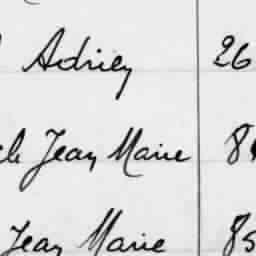 Adrien 26
Jean Marie
Jean Marie 85